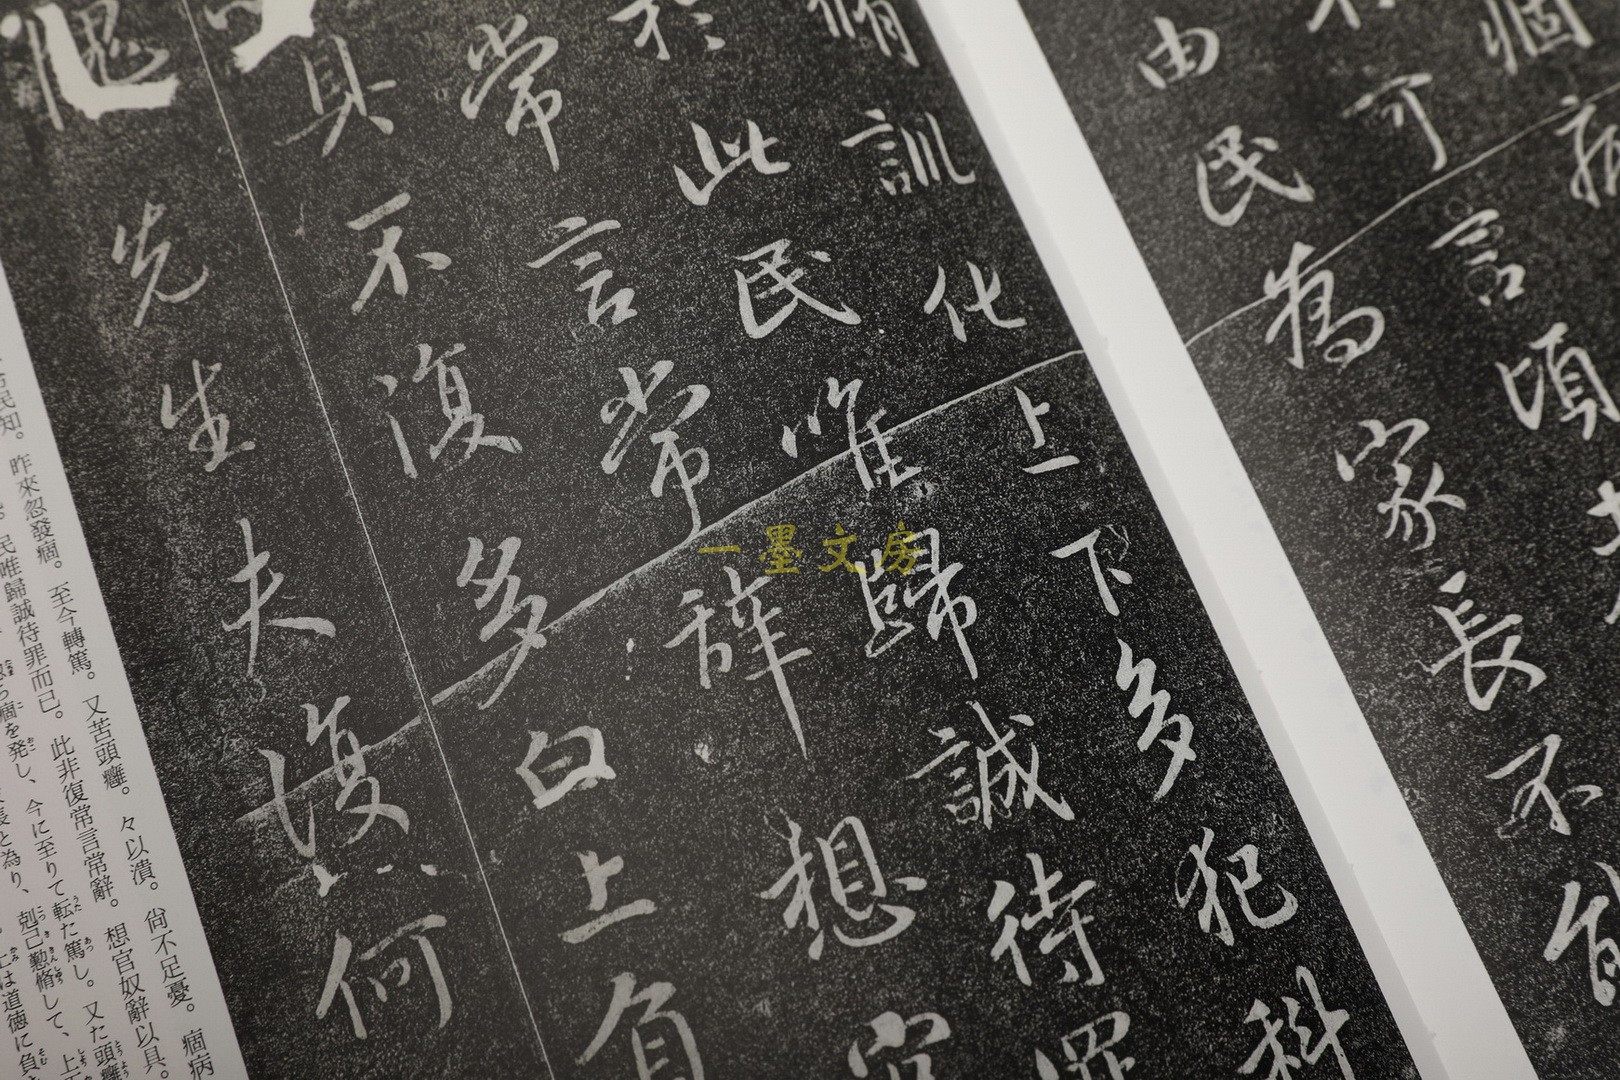 痼病
可言頃
由民為家長不能
脩訓化上下多犯科
於此民唯歸誠待罪
常言常辭想官
具不復多白上負
愧先生夫復何
一墨文房
民知。昨來忽發痼。至今轉篤。又苦頭癰。々以潰。尙不足憂。痼病
民唯歸誠待罪而已。此非復常言常辭。想官奴辭以具。
痼を発し、今に至りて転た篤し。又た頭癰
長と為り、剋己懃脩して、上
上は道徳に負